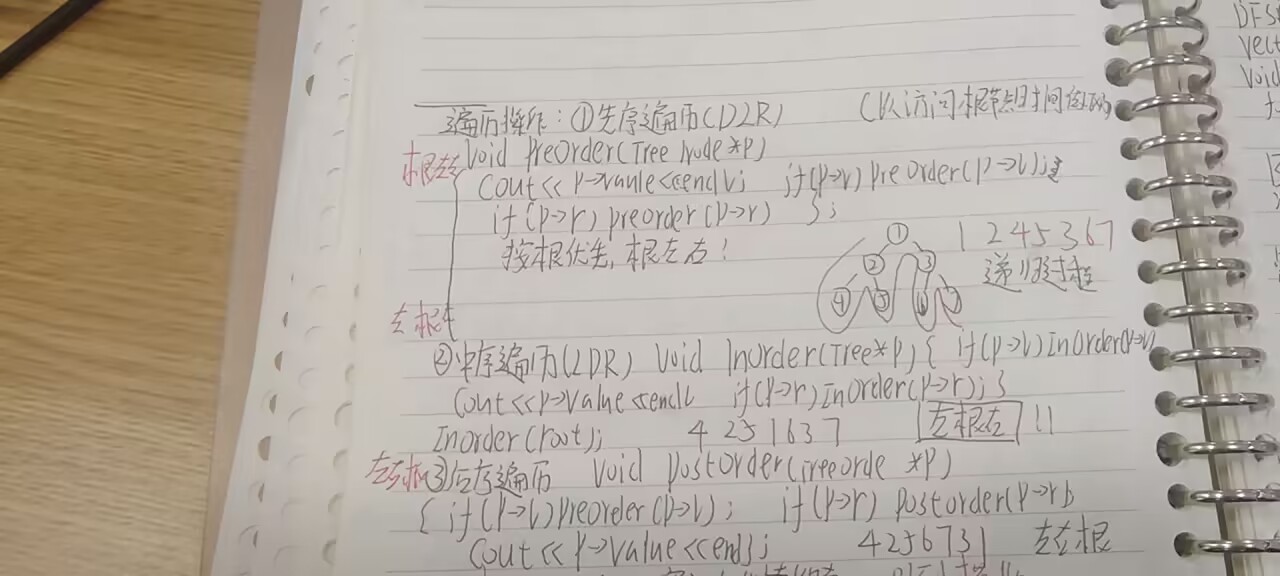 遍历操作:①先序遍历(DLR) (以访问根节点时间
根左右 Void PreOrder(Tree Node *P)
Cout<<P->vaule<<endl; if(P->l)preorder(P->l);
if(P->r)preorder(P->r) };
按根优先,根左右!
① ② ③ ④ ⑤ ⑥ ⑦ 1 2 4 5 3 6 7
递归过程
左根右
②中序遍历(LDR) Void InOrder(Tree*P){ if(P->l)InOrder(P->l)
Cout<<P->value<<endl if(P->r)InOrder(P->r);}
Inorder(root); 4 2 5 1 6 3 7 左根右 !!
左右根 ③后序遍历 Void postOrder(Treeorde *P)
{ if(P->l)preorder(P->l); if(P->r)Postorder(P->r)
Cout<<P->value<<endl; 4 2 5 6 7 3 1 左右根
DFS
Vect
Void